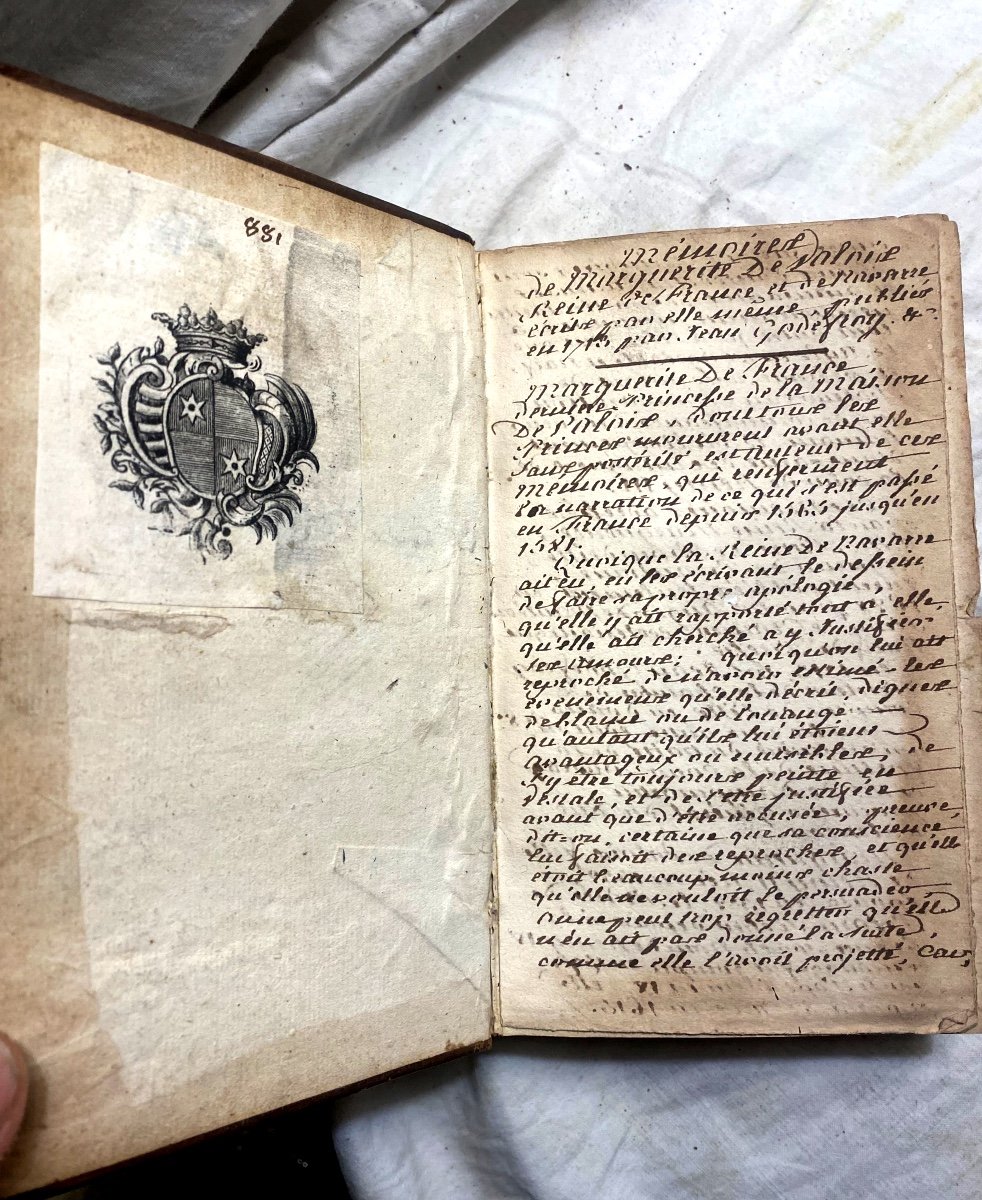 881
Mémoires
de Marguerite De Valois
Reine de France et de Navarre
écrits par elle même publiés
en 1713 par Jean Godefroy &c
Marguerite De France
derniere Princesse de la Maison
De Valois, dont tous les
Princes moururent avant elle
sans postérité, est auteur de ces
Mémoires, qui renferment
la narration de ce qui s'est passé
en France depuis 1565 jusqu'en
1581.
Quoique la Reine De Navarre
ait eu, en les écrivant le dessein
de faire sa propre apologie,
qu'elle y ait rapporté tout a elle,
qu'elle ait cherché a y Justifier
ses amours; quoiqu'on lui ait
reproché de n'avoir estimé les
évenemens qu'elle décrit, dignes
de blame ou de louange
qu'autant qu'ils lui étoient
avantageux ou nuisibles, de
s'y être toujours peinte en
Vestale, et de s'etre justifiée
avant que d'être accusée, preuve,
dit-on, certaine que sa conscience
lui faisoit des reproches, et qu'elle
étoit beaucoup moins chaste
qu'elle ne vouloit le persuader
on ne peut trop regretter qu'elle
n'en ait pas donné la suite,
comme elle l'avoit projetté, Car,